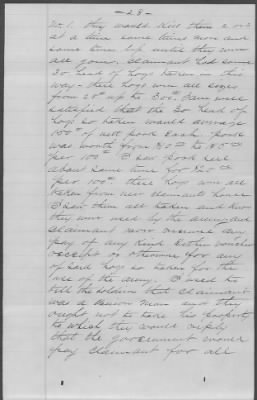 - 28 -
No. 1. they would kill them 2 or 3
at a time some times more and
some times less until they were
all gone. Claimant had some
30 head of hogs taken in this
way - these hogs were all sizes
from 25 up to 300. I am well
satisfied that the 30 head of
hogs so taken would average
150 lbs of nett pork each. pork
was worth from $10.00 to $15.00
per 100 lbs I saw pork sell
about same time for $20.00
per 100 lbs. these hogs were all
taken from near claimants house
I saw them all taken and know
they were used by the army and
claimant never received any
pay of any kind either voucher
receipt or otherwise for any
of said hogs so taken for the
use of the army. I used to
tell the soldiers that claimant
was a Union man and they
ought not to take his property
to which they would reply
that the government would
pay claimant for all